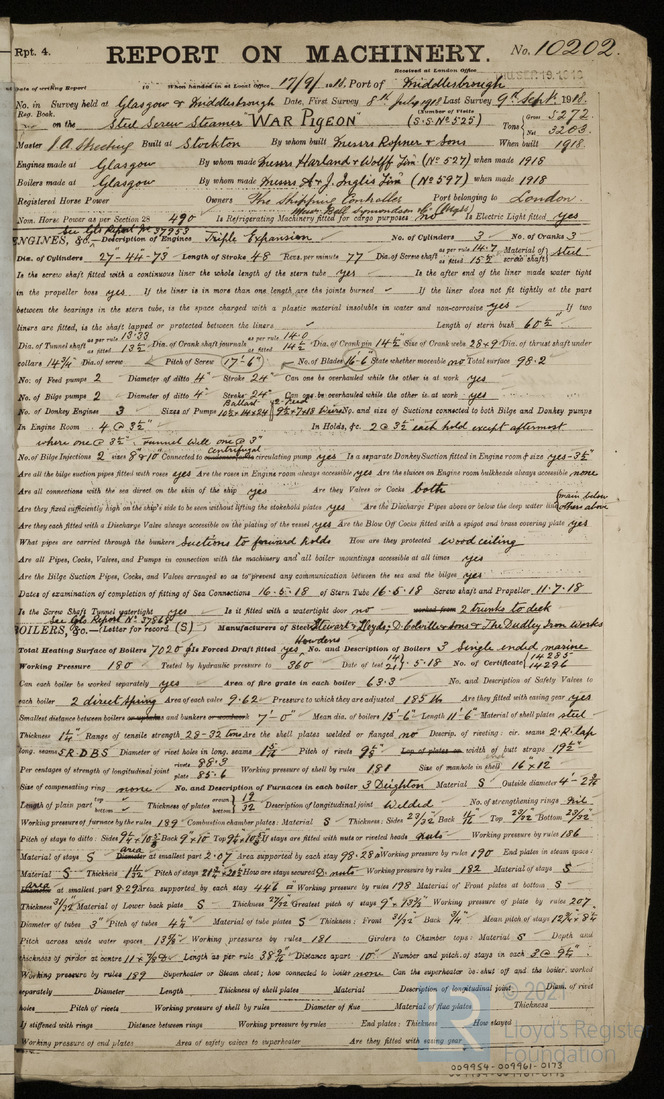 Rpt. 4.
REPORT ON MACHINERY.
No. 10202.
Received at London Office
THUR SEP. 19. 1918
Date of writing Report 19 When handed in at Local Office 17/9/1918 Port of Middlesbrough
No. in Survey held at Glasgow & Middlesbrough Date, First Survey 8th July 1918 Last Survey 9th Sept. 1918.
Reg. Book. (Number of Visits
on the Steel Screw Steamer "WAR PIGEON" (S.S. No 525) Tons { Gross 5272 Net 3203
Master Built at Stockton By whom built Messrs Ropner & Sons When built 1918.
Engines made at Glasgow By whom made Messrs Harland & Wolff Lim. (No 527) when made 1918
Boilers made at Glasgow By whom made Messrs A & J. Inglis Lim (No 597) when made 1918
Registered Horse Power Owners The Shipping Controller Port belonging to London.
Nom. Horse Power as per Section 28 490 Is Refrigerating Machinery fitted for cargo purposes no Is Electric Light fitted yes
See Gls Report No 37953
ENGINES, &c.—Description of Engines Triple Expansion No. of Cylinders 3 No. of Cranks 3
Dia. of Cylinders 27-44-73 Length of Stroke 48 Revs. per minute 77 Dia. of Screw shaft as per rule 14.7 as fitted 15 1/2 Material of screw shaft steel
Is the screw shaft fitted with a continuous liner the whole length of the stern tube yes Is the after end of the liner made water tight
in the propeller boss yes If the liner is in more than one length are the joints burned ✓ If the liner does not fit tightly at the part
between the bearings in the stern tube, is the space charged with a plastic material insoluble in water and non-corrosive yes If two
liners are fitted, is the shaft lapped or protected between the liners ✓ Length of stern bush 60 1/2"
Dia. of Tunnel shaft as per rule 13.33 as fitted 13 1/2 Dia. of Crank shaft journals as per rule 14.0 as fitted 14 1/2 Dia. of Crank pin 14 1/2 Size of Crank webs 28 x 9 Dia. of thrust shaft under
collars 14 3/4 Dia. of screw Pitch of Screw (17'-6") No. of Blades 16'-6" State whether moveable no Total surface 98.2
No. of Feed pumps 2 Diameter of ditto 4" Stroke 24" Can one be overhauled while the other is at work yes
No. of Bilge pumps 2 Diameter of ditto 4" Stroke 24" Can one be overhauled while the other is at work yes
No. of Donkey Engines 3 Sizes of Pumps Ballast 10 1/2 x 14 x 24 2-Feed 9 1/2 x 7 x 18 No. and size of Suctions connected to both Bilge and Donkey pumps
In Engine Room 4 @ 3 1/2" In Holds, &c. 2 @ 3 1/2" each hold except aftermost
where one @ 3 1/2". Tunnel Well one @ 3"
No. of Bilge Injections 2 sizes 8 & 10" Connected to centrifugal circulating pump yes Is a separate Donkey Suction fitted in Engine room & size yes-3 1/2"
Are all the bilge suction pipes fitted with roses yes Are the roses in Engine room always accessible yes Are the sluices on Engine room bulkheads always accessible none
Are all connections with the sea direct on the skin of the ship yes Are they Valves or Cocks both
Are they fixed sufficiently high on the ship's side to be seen without lifting the stokehold plates yes Are the Discharge Pipes above or below the deep water line { main below others above
Are they each fitted with a Discharge Valve always accessible on the plating of the vessel yes Are the Blow Off Cocks fitted with a spigot and brass covering plate yes
What pipes are carried through the bunkers Suctions to forward holds How are they protected wood ceiling
Are all Pipes, Cocks, Valves, and Pumps in connection with the machinery and all boiler mountings accessible at all times yes
Are the Bilge Suction Pipes, Cocks, and Valves arranged so as to prevent any communication between the sea and the bilges yes
Dates of examination of completion of fitting of Sea Connections 16.5.18 of Stern Tube 16.5.18 Screw shaft and Propeller 11.7.18
Is the Screw Shaft Tunnel watertight yes Is it fitted with a watertight door no worked from 2 trunks to deck
See Gls Report No 37868
BOILERS, &c.—(Letter for record (S)) Manufacturers of Steel Stewart & Lloyds; D. Colville & Sons & The Dudley Iron Works
Howdens
Total Heating Surface of Boilers 7020 Is Forced Draft fitted yes No. and Description of Boilers 3 Single ended marine
Working Pressure 180 Tested by hydraulic pressure to 360 Date of test 14/21.5.18 No. of Certificate 14285 14296
Can each boiler be worked separately yes Area of fire grate in each boiler 63.3 No. and Description of Safety Valves to
each boiler 2 direct spring Area of each valve 9.62 Pressure to which they are adjusted 185 lbs Are they fitted with easing gear yes
Smallest distance between boilers or uptakes and bunkers or woodwork 7'-0" Mean dia. of boilers 15'-6" Length 11'-6" Material of shell plates steel
Thickness 1 1/4" Range of tensile strength 28-32 tons Are the shell plates welded or flanged no Descrip. of riveting: cir. seams 2-R. lap
long. seams 5R. DBS Diameter of rivet holes in long. seams 1 5/16" Pitch of rivets 9 1/2" Lap of plates or width of butt straps 19 1/2"
Per centages of strength of longitudinal joint rivets 88.3 plate 85.6 Working pressure of shell by rules 181 Size of manhole in shell 16" x 12"
Size of compensating ring none No. and Description of Furnaces in each boiler 3 Deighton Material S Outside diameter
Length of plain part top bottom Thickness of plates crown bottom 19/32 Description of longitudinal joint Welded No. of strengthening rings nil
Working pressure of furnace by the rules 189 Combustion chamber plates: Material S Thickness: Sides 23/32 Back Top 23/32 Bottom 23/32
Pitch of stays to ditto: Sides Back 9 x 10 Top If stays are fitted with nuts or riveted heads nuts Working pressure by rules 186
Material of stays S area Diameter at smallest part 2.07 Area supported by each stay 98.28 Working pressure by rules 190 End plates in steam space:
Material S Thickness Pitch of stays How are stays secured D. nuts Working pressure by rules 182 Material of stays S
area Diameter at smallest part 8.29 Area supported by each stay 446 Working pressure by rules 198 Material of Front plates at bottom S
Thickness 31/32 Material of Lower back plate S Thickness 27/32 Greatest pitch of stays Working pressure of plate by rules 207
Diameter of tubes 3" Pitch of tubes 4 1/4" Material of tube plates S Thickness: Front 31/32 Back 3/4" Mean pitch of stays
Pitch across wide water spaces Working pressures by rules 181 Girders to Chamber tops: Material S Depth and
thickness of girder at centre Length as per rule Distance apart 10" Number and pitch of stays in each 3 @ 9 1/2"
Working pressure by rules 189 Superheater or Steam chest; how connected to boiler none Can the superheater be shut off and the boiler worked
separately Diameter Length Thickness of shell plates Material Description of longitudinal joint Diam. of rivet
holes Pitch of rivets Working pressure of shell by rules Diameter of flue Material of flue plates Thickness
If stiffened with rings Distance between rings Working pressure by rules End plates: Thickness How stayed
Working pressure of end plates Area of safety valves to superheater Are they fitted with easing gear
© 2021
Lloyd's Register
Foundation
009954-009961-0173